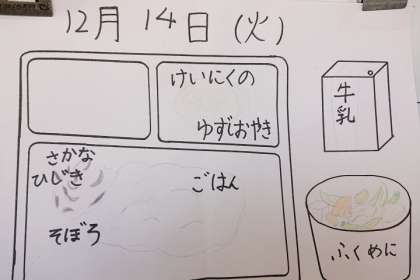 12月 14日 (火)
けいにくの
ゆずじおやき
牛乳
さかな
ひじき
ごはん
そぼろ
ふくめに